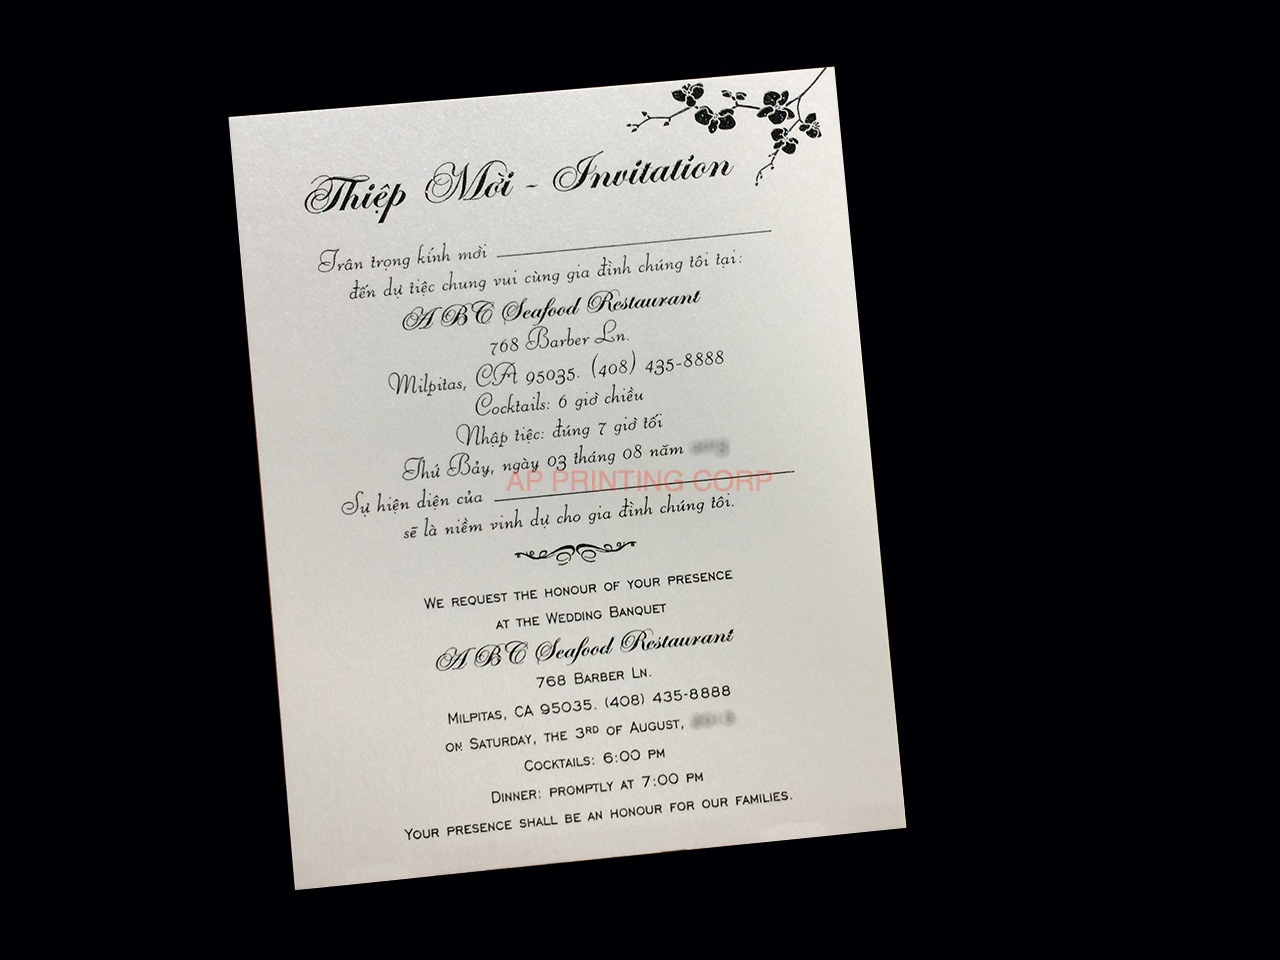 Thiệp Mời - Invitation
Trân trọng kính mời
đến dự tiệc chung vui cùng gia đình chúng tôi tại:
ABC Seafood Restaurant
768 Barber Ln.
Milpitas, CA 95035. (408) 435-8888
Cocktails: 6 giờ chiều
Nhập tiệc: đúng 7 giờ tối
Thứ Bảy, ngày 03 tháng 08 năm
AP PRINTING CORP
Sự hiện diện của
sẽ là niềm vinh dự cho gia đình chúng tôi.
We request the honour of your presence
at the Wedding Banquet
ABC Seafood Restaurant
768 Barber Ln.
Milpitas, CA 95035. (408) 435-8888
on Saturday, the 3rd of August,
Cocktails: 6:00 pm
Dinner: promptly at 7:00 pm
Your presence shall be an honour for our families.